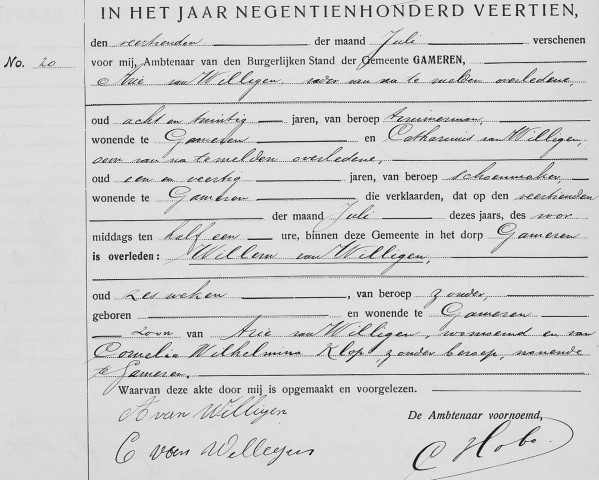 IN HET JAAR NEGENTIENHONDERD VEERTIEN,
den veertienden der maand Juli verschenen
No. 20 voor mij, Ambtenaar van den Burgerlijken Stand der Gemeente GAMEREN,
Arie van Willigen, vader van na te melden overledene,
oud acht en twintig jaren, van beroep timmerman,
wonende te Gameren en Catharinus van Willigen,
oom van na te melden overledene,
oud een en veertig jaren, van beroep schoenmaker,
wonende te Gameren die verklaarden, dat op den veertienden
der maand Juli dezes jaars, des voor
middags ten half een ure, binnen deze Gemeente in het dorp Gameren
is overleden: Willem van Willigen,
oud zes weken, van beroep zonder,
geboren en wonende te Gameren
zoon van Arie van Willigen, voornoemd en van
Cornelia Wilhelmina Klop, zonder beroep, wonende
te Gameren.
Waarvan deze akte door mij is opgemaakt en voorgelezen.
A van Willigen
De Ambtenaar voornoemd,
C van Willegen
C Hobo